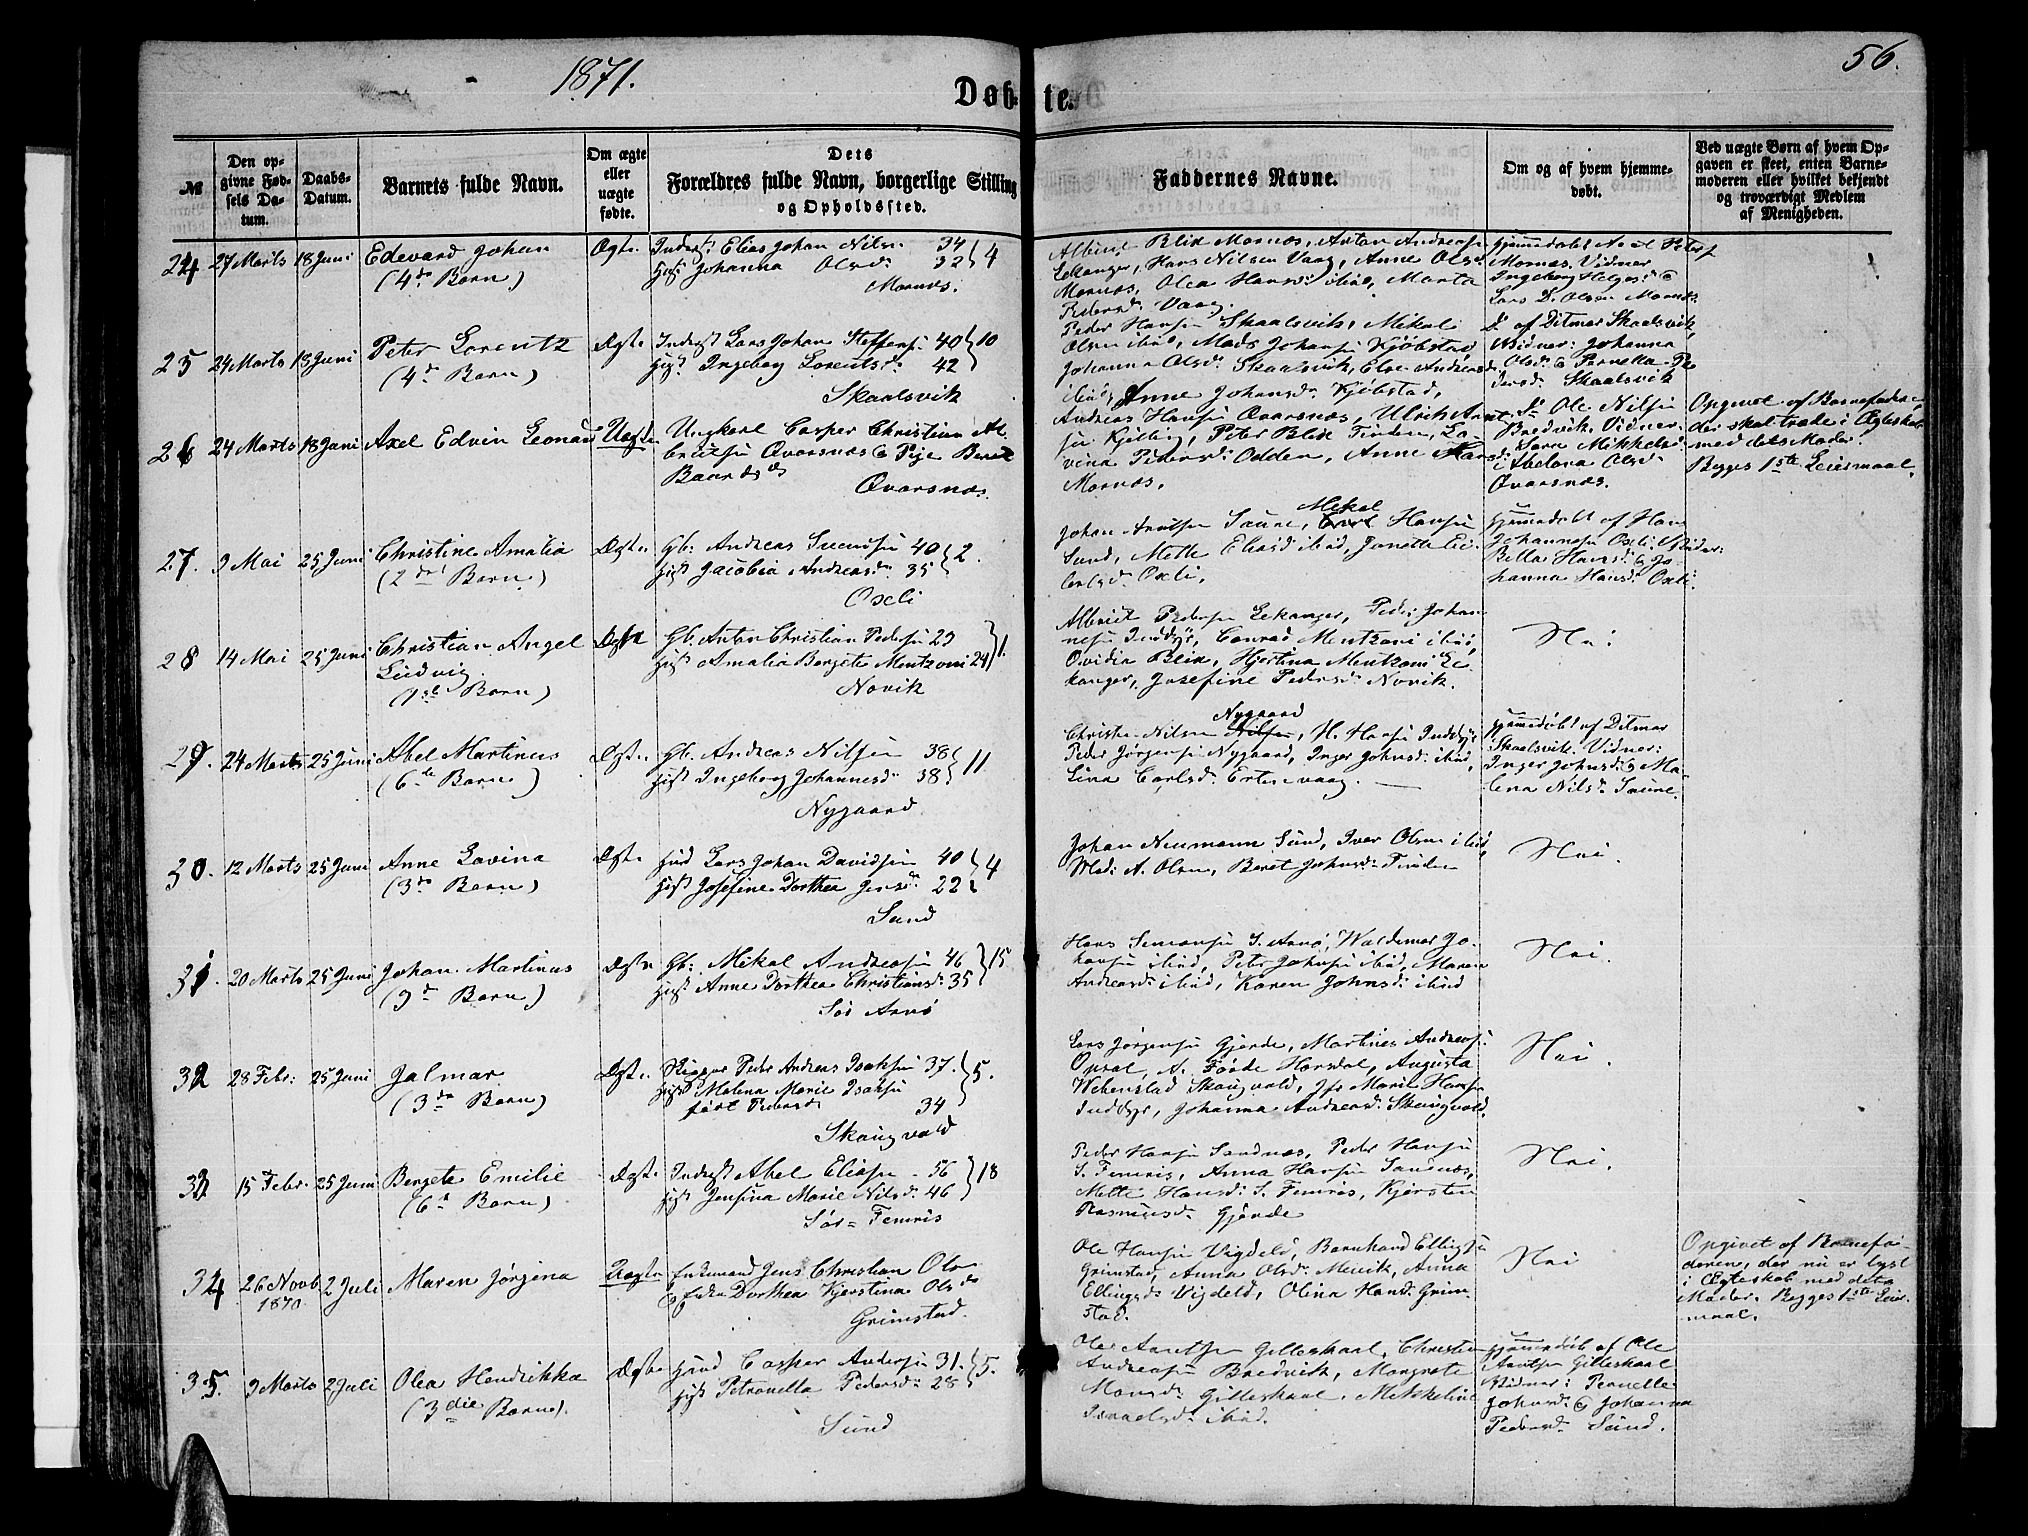 1871.
56.
Døbte.
№
Den opgivne Fødsels Datum.
Daabs-Datum.
Barnets fulde Navn.
Om ægte eller uægte fødte.
Dets Forældres fulde Navn, borgerlige Stilling og Opholdssted.
Faddernes Navne.
Om og af hvem hjemmedøbt.
Ved uægte Børn af hvem Opgaven er skeet, enten Barnemoderen eller hvilket bekjendt og troværdigt Medlem af Menigheden.
24 27 Marts 18 Juni Edevard Johan
(4de Barn)
Ægte Inderst Elias Johan Nilsen 34 } 4
Johanna Olsd: 32
Mornæs.
Albriet Blix Mornæs, Anton Andreasen
Eekanger, Hans Nilsen Vaag, Anne Olsd
Mornæs, Olea Hansd: ibid, Marta
Pedersd. Vaag.
Mornæs. Vidner
Ingeborg Helgesd: &
Lars D. Olsen Mornæs
25 24 Marts 18 Juni Peter Lorentz
(4de Barn)
Ægte Inderst Lars Johan Steffensen 40 } 10
Ingeborg Lorentsd: 42
Skaalsvik
Peder Hansen Skaalsvik, Mikal
Olsen ibid, Mads Johansen Kjøbstad,
Johanna Olsd: Skaalsvik, Else Andreasd:
ibid, Anne Johansd: Kjøbstad.
D: af Ditmar Skaalsvik,
Vidner: Johanna
Olsd: & Pernella Pedersd: Skaalsvik
26 24 Marts 18 Juni Axel Edvin Leonard
Uægte Ungkarl Casper Christian Albrietsen Qvarsnæs & Pige Beret
Baardsd:
Qvarsnæs.
Andreas Hansen Qvarsnæs, Ulrich Arntsen Kjelling, Peter Blix Tinden, Lavina Pedersd: Odden, Anne Hansd:
Mornæs.
D: Ole Nilsen
Bredvik. Vidner:
Sara Mikkelsd:
Abelona Olsd:
Qvarsnæs.
Opgivet af Barnefaderen,
der skal træde i Ægteskab
med dets Moder.
Begges 1ste Leiermaal.
27. 9 Mai 25 Juni Christine Amalia
(2det Barn)
Ægte Gb: Andreas Svendsen 40 } 2.
Jacobia Andreasd: 35
Oxeli
Johan Arntsen Saure, Mikal Hansen
Sund, Mette Eliasd ibid, Oxeli,
Hjemmedøbt af Hans
Johannesen Oxeli Vidner:
Hansd: & Johanna Hansd: Oxeli
28 14 Mai 25 Juni Christian Angel
Ludvig
(1ste Barn)
Ægte Gb: Anton Christian Pedersen 29 } 1.
Amalia Bergete Mentzoni 24
Novik
Albriet Pedersen Eekanger, Peder Johannesen Inddyr, Conrad Mentzoni ibid,
Ovidia Blix, Hjertina Mentzoni Eekanger, Josefine Pedersd: Novik.
Nei
29. 24 Marts 25 Juni Abel Martinus
(6te Barn)
Ægte Gb: Andreas Nilsen 38 } 11
Ingeborg Johannesd: 38
Nygaard
Christen Nilsen Nygaard, H. Hansen Inddyr,
Peder Jørgensen Nygaard, Inger Johnsd: ibid,
Lina Carlsd: Ertenvaag.
Hjemmedøbt af Ditmar
Skaalsvik. Vidner:
Inger Johnsd: & Malena Nilsd: Saure.
30. 12 Marts 25 Juni Anne Lovina
(3de Barn)
Ægte Lars Johan Davidsen 40 } 4
Josefine Dorthea Jensd: 22
Sund
Johan Neumann Sund, Iver Olsen ibid,
Mad: A. Olsen, Beret Johnsd: Tinden
Nei.
31. 20 Marts 25 Juni Johan Martinus
(9de Barn)
Ægte Gb: Mikal Andreasen 46 } 15
Anne Dorthea Christiansd: 35
Sør Arnø
Hans Simonsen S. Arnø, Waldemar Johansen ibid, Peter Johnsen ibid, Maren
Andreasd: ibid, Karen Johnsd: ibid
Nei.
32 28 Febr: 25 Juni Jalmar
(3de Barn)
Ægte Skipper Peder Andreas Isaksen 37. } 5.
Malena Marie Isaksen
født Pedersd: 34
Skaugvold
Lars Jørgensen Gjørde, Martines Andreas:
Opsal, A. Føde Horsdal, Augusta
Wehenstad Skaugvold, Jfr Marie Hansen
Inddyr, Johanna Andreasd: Skaugvold.
Nei.
33 15 Febr. 25 Juni Bergete Emilie
(6te Barn)
Ægte Inderst Abel Eliasen 56 } 18
Jensina Marie Nilsd: 46
Sør=Femris
Peder Hansen Sandnæs, Peder Hansen
S. Femris, Anna Hansen Sandnæs,
Mette Hansd: S. Femris, Kjersten
Rasmusd: Gjørde
Nei.
34 26 Novb 1870 2 Juli Maren Jørgina
Uægte Enkemand Jens Christian Olsen
& Enke Dorthea Kjerstina Olsd:
Grimstad.
Ole Hansen Vigdeld, Bernhard Ellingsen
Grimstad, Anna Olsd: Mevik, Anna
Ellingsd: Vigdeld, Olina Hansd: Grimstad.
Nei
Opgivet af Barnefaderen, der nu er lyst
i Ægteskab med dets
Moder. Begges 1ste Leiermaal.
35. 9 Marts 2 Juli Olea Hendrikka
(3die Barn).
Ægte Casper Andersen 31. } 5.
Petronella Pedersd: 28
Sund
Ole Arntsen Gilleskaal, Christen
Andreasen Bredvik, Margrete
Monsd: Gilleskaal, Mekkeline
Israelsd: ibid.
Hjemmedøbt af Ole
Arntsen Gilleskaal
Vidner: Pernelle
Johnsd: & Johanna
Pedersd: Sund.